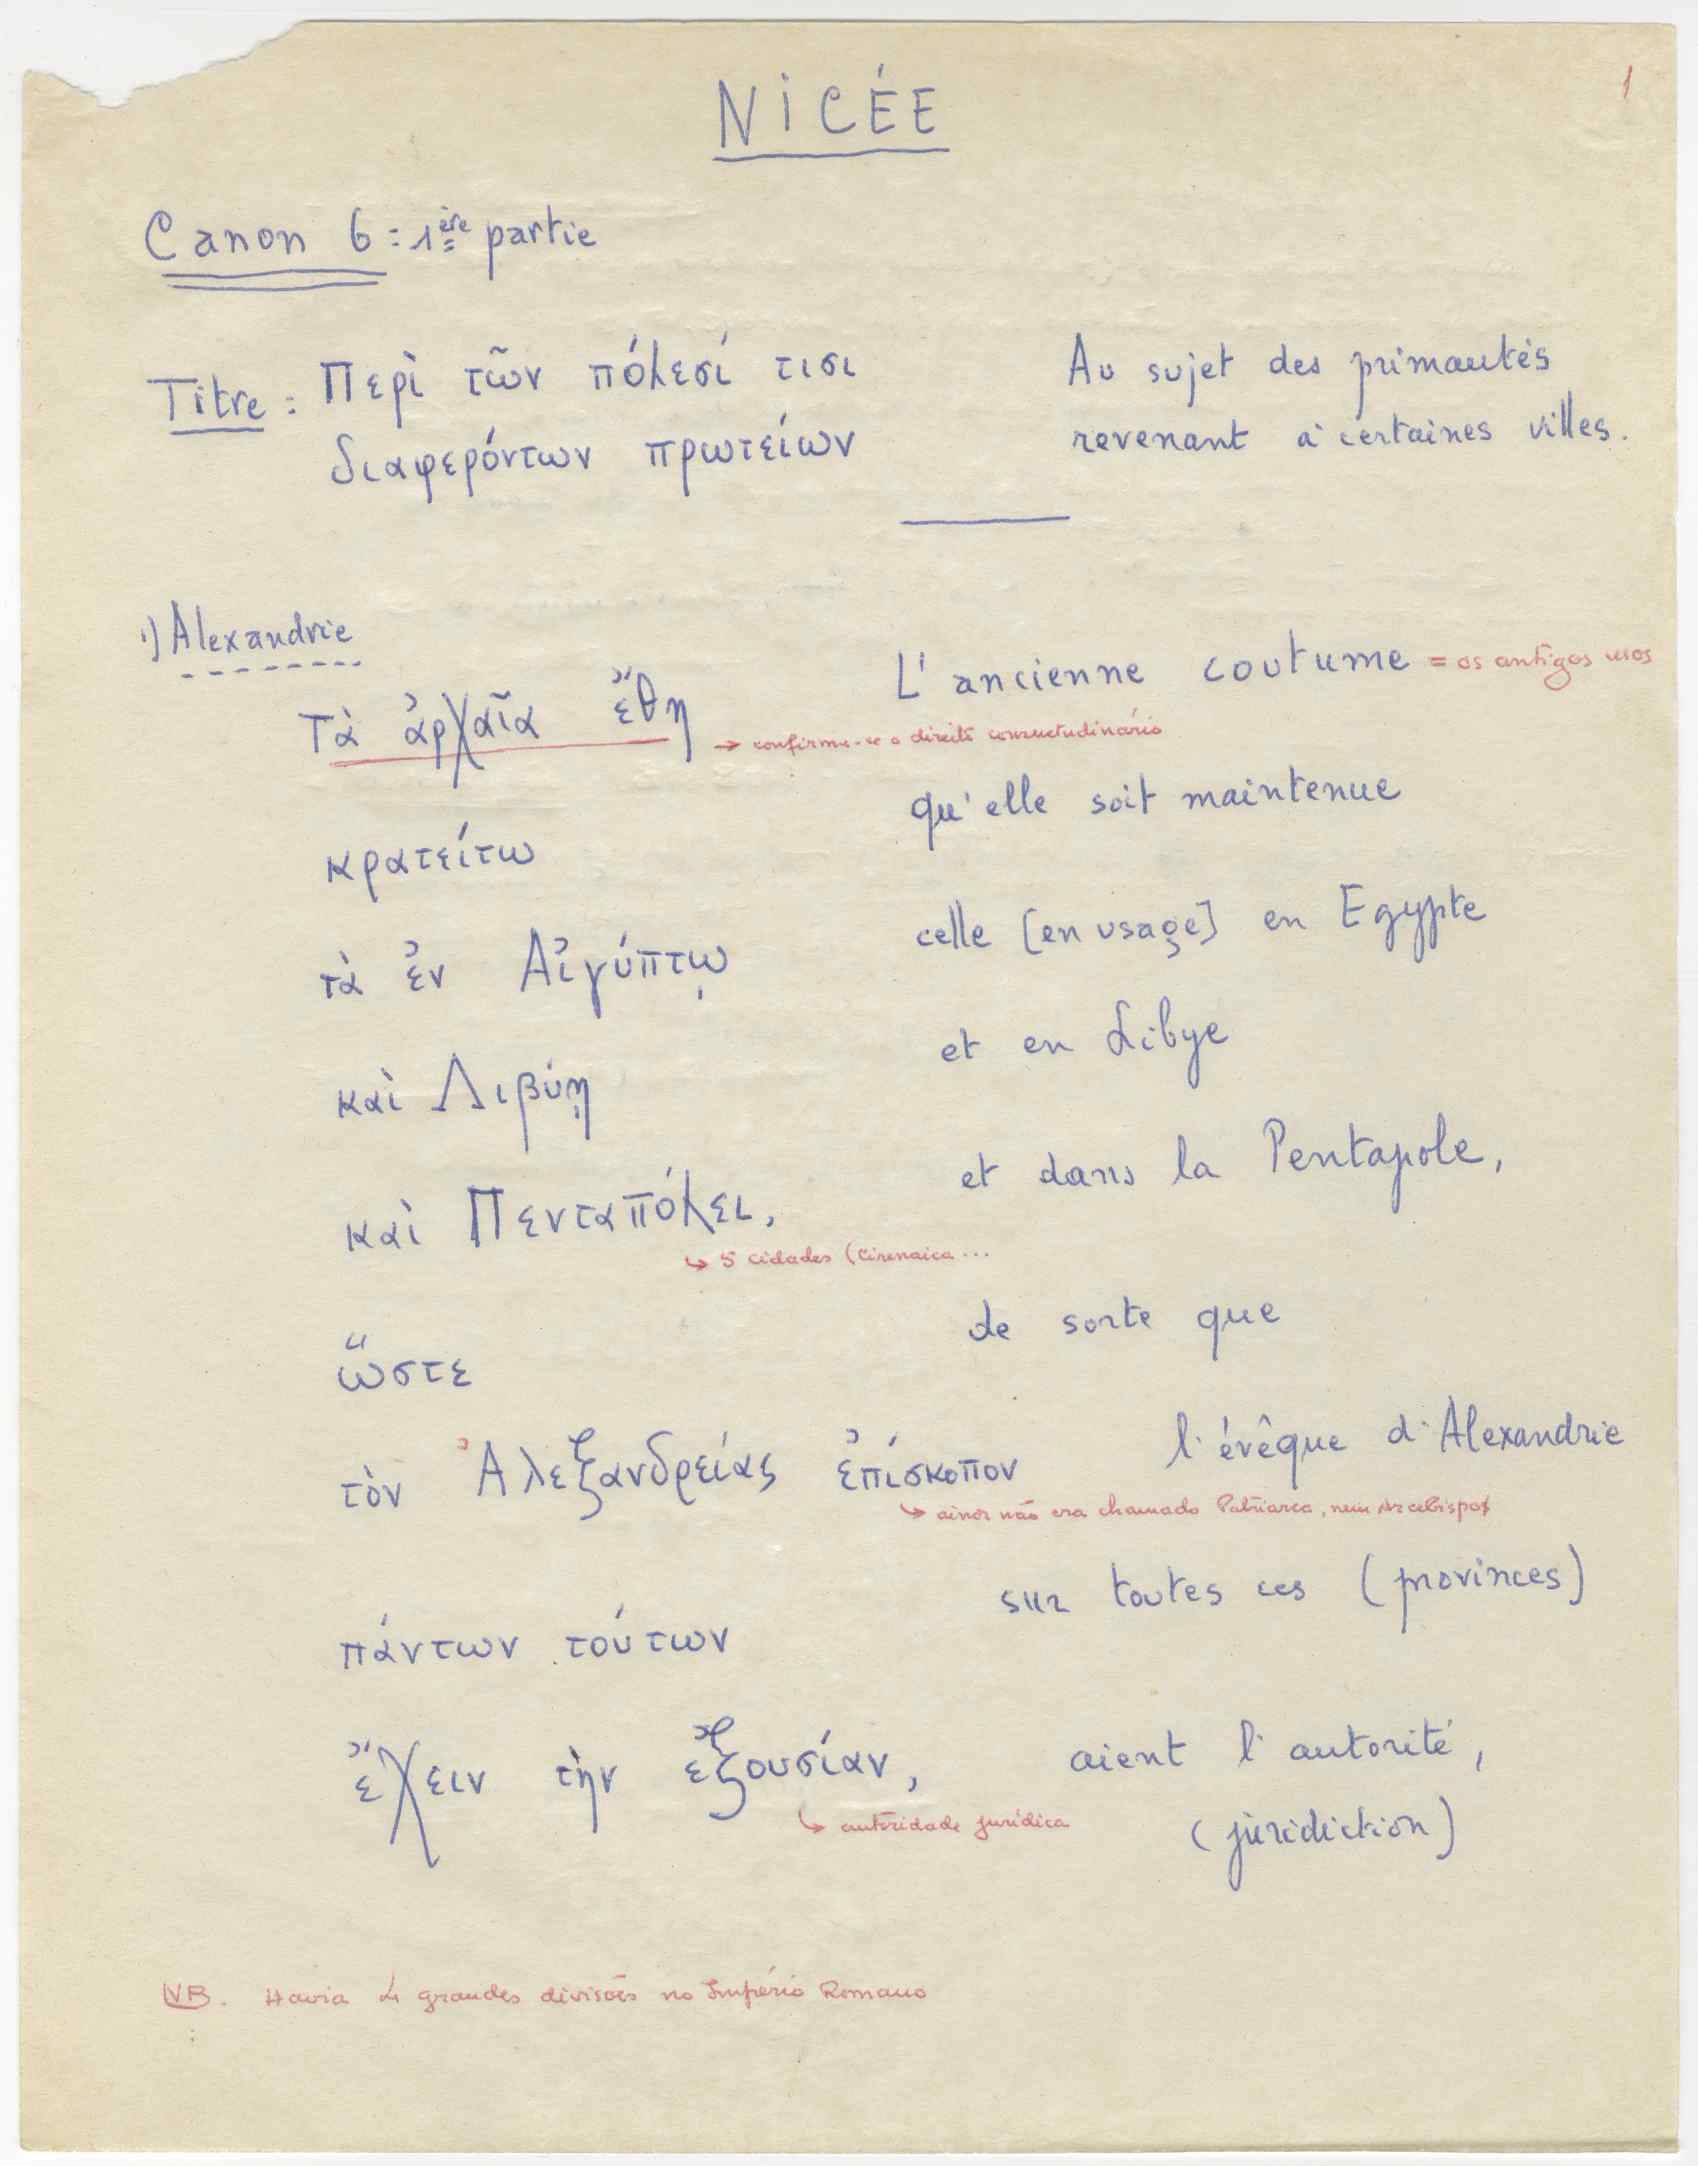 1
NICÉE
Canon 6 : 1ère partie
Titre : Περὶ τῶν πόλεσί τισι
διαφερόντων πρωτείων
Au sujet des primautés
revenant à certaines villes.
1) Alexandrie
Τὰ ἀρχαῖα ἔθη
L'ancienne coutume = os antigos usos
→ confirma-se o direito consuetudinário
κρατείτω
qu'elle soit maintenue
τὰ ἐν Αἰγύπτῳ
celle [en usage] en Egypte
καὶ Λιβύῃ
et en Libye
καὶ Πενταπόλει,
et dans la Pentapole,
↳ 5 cidades (Cirenaica ...
ὥστε
de sorte que
τὸν Ἀλεξανδρείας ἐπίσκοπον
l'évêque d'Alexandrie
↳ ainda não era chamado Patriarca, nem Arcebispo
πάντων τούτων
sur toutes ces (provinces)
ἔχειν τὴν ἐξουσίαν,
aient l'autorité,
↳ autoridade jurídica
(juridiction)
NB. Havia 4 grandes divisões no Império Romano